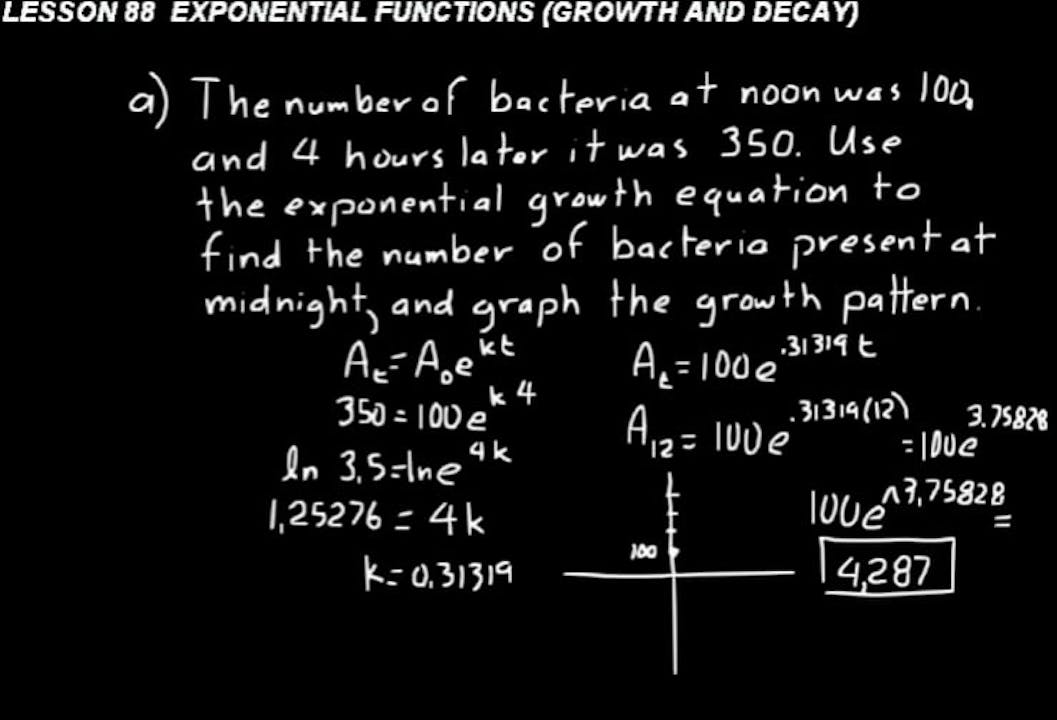 LESSON 88 EXPONENTIAL FUNCTIONS (GROWTH AND DECAY)
a) The number of bacteria at noon was 100,
and 4 hours later it was 350. Use
the exponential growth equation to
find the number of bacteria present at
midnight, and graph the growth pattern.
Aₜ = A₀e^kt
350 = 100e^k4
ln 3.5 = lne^4k
1.25276 = 4k
k = 0.31319
Aₜ = 100e^.31319t
A₁₂ = 100e^.31319(12) = 100e^3.75828
100e^3.75828 =
4,287
100